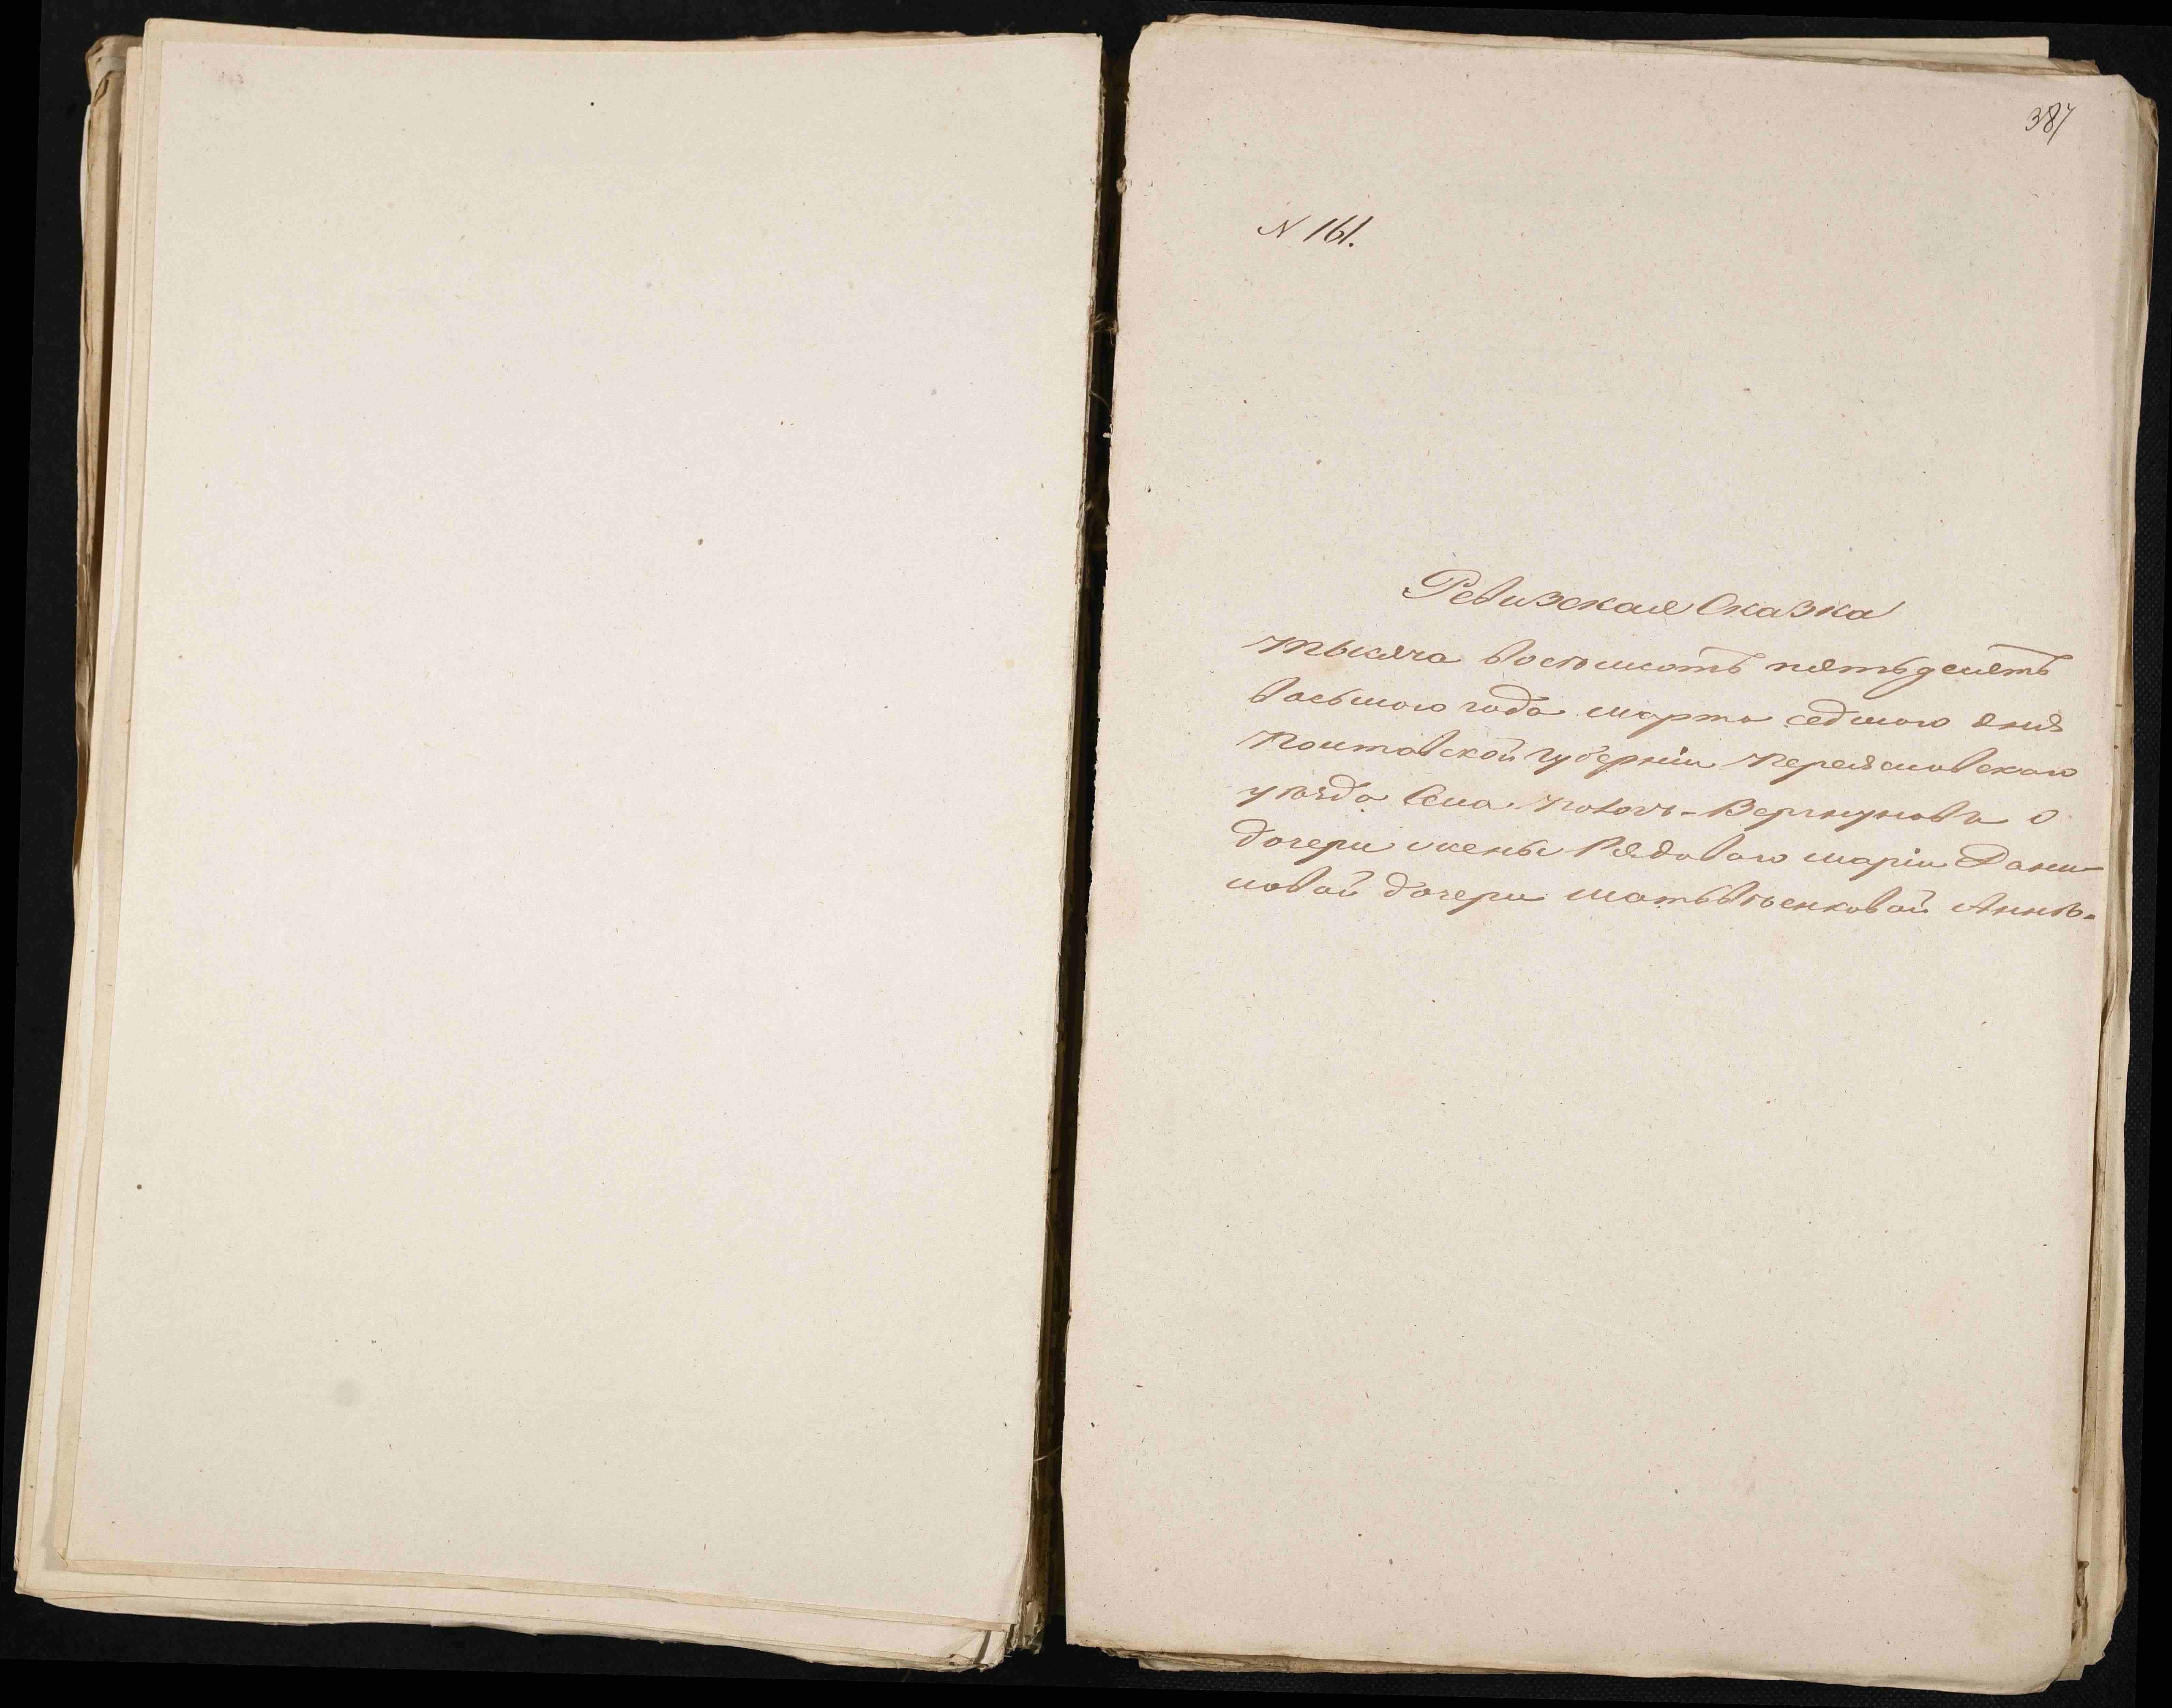 387
N 161.
Ревизская Сказка
тысяча восѣмсотъ пятьдесятъ
восьмого года марта седмого дня
Полтавской губерніи Переяславского
уѣзда Села Вергуновъ о
дочери жены Рядового Маріи Дани-
ловой дочери Матьвѣенковой Аннѣ.